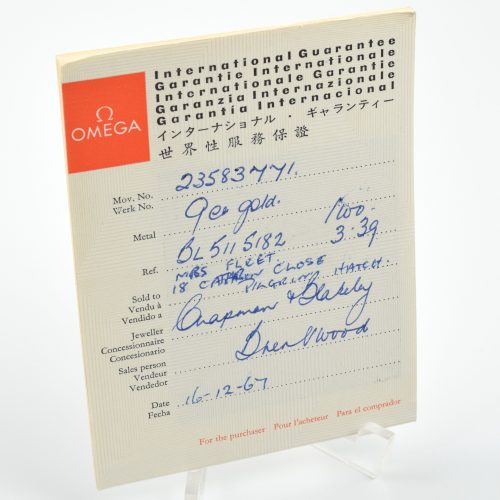 International Guarantee
Garantie Internationale
Internationale Garantie
Garanzia Internazionale
Garantia Internacional
インターナショナル・ギャランティー
世界性服務保證
Ω
OMEGA
Mov. No. 23583771.
Werk No.
Metal 9ct gold.
Ref. BL 511 5182 3:39
MRS FLEET.
Sold to 18 CLOSE
Vendu à HATCH
Vendido a
Jeweller Chapman & Blakeley
Concessionnaire
Concesionario
Sales person Wood
Vendeur
Vendedor
Date 16-12-67
Fecha
For the purchaser Pour l'acheteur Para el comprador